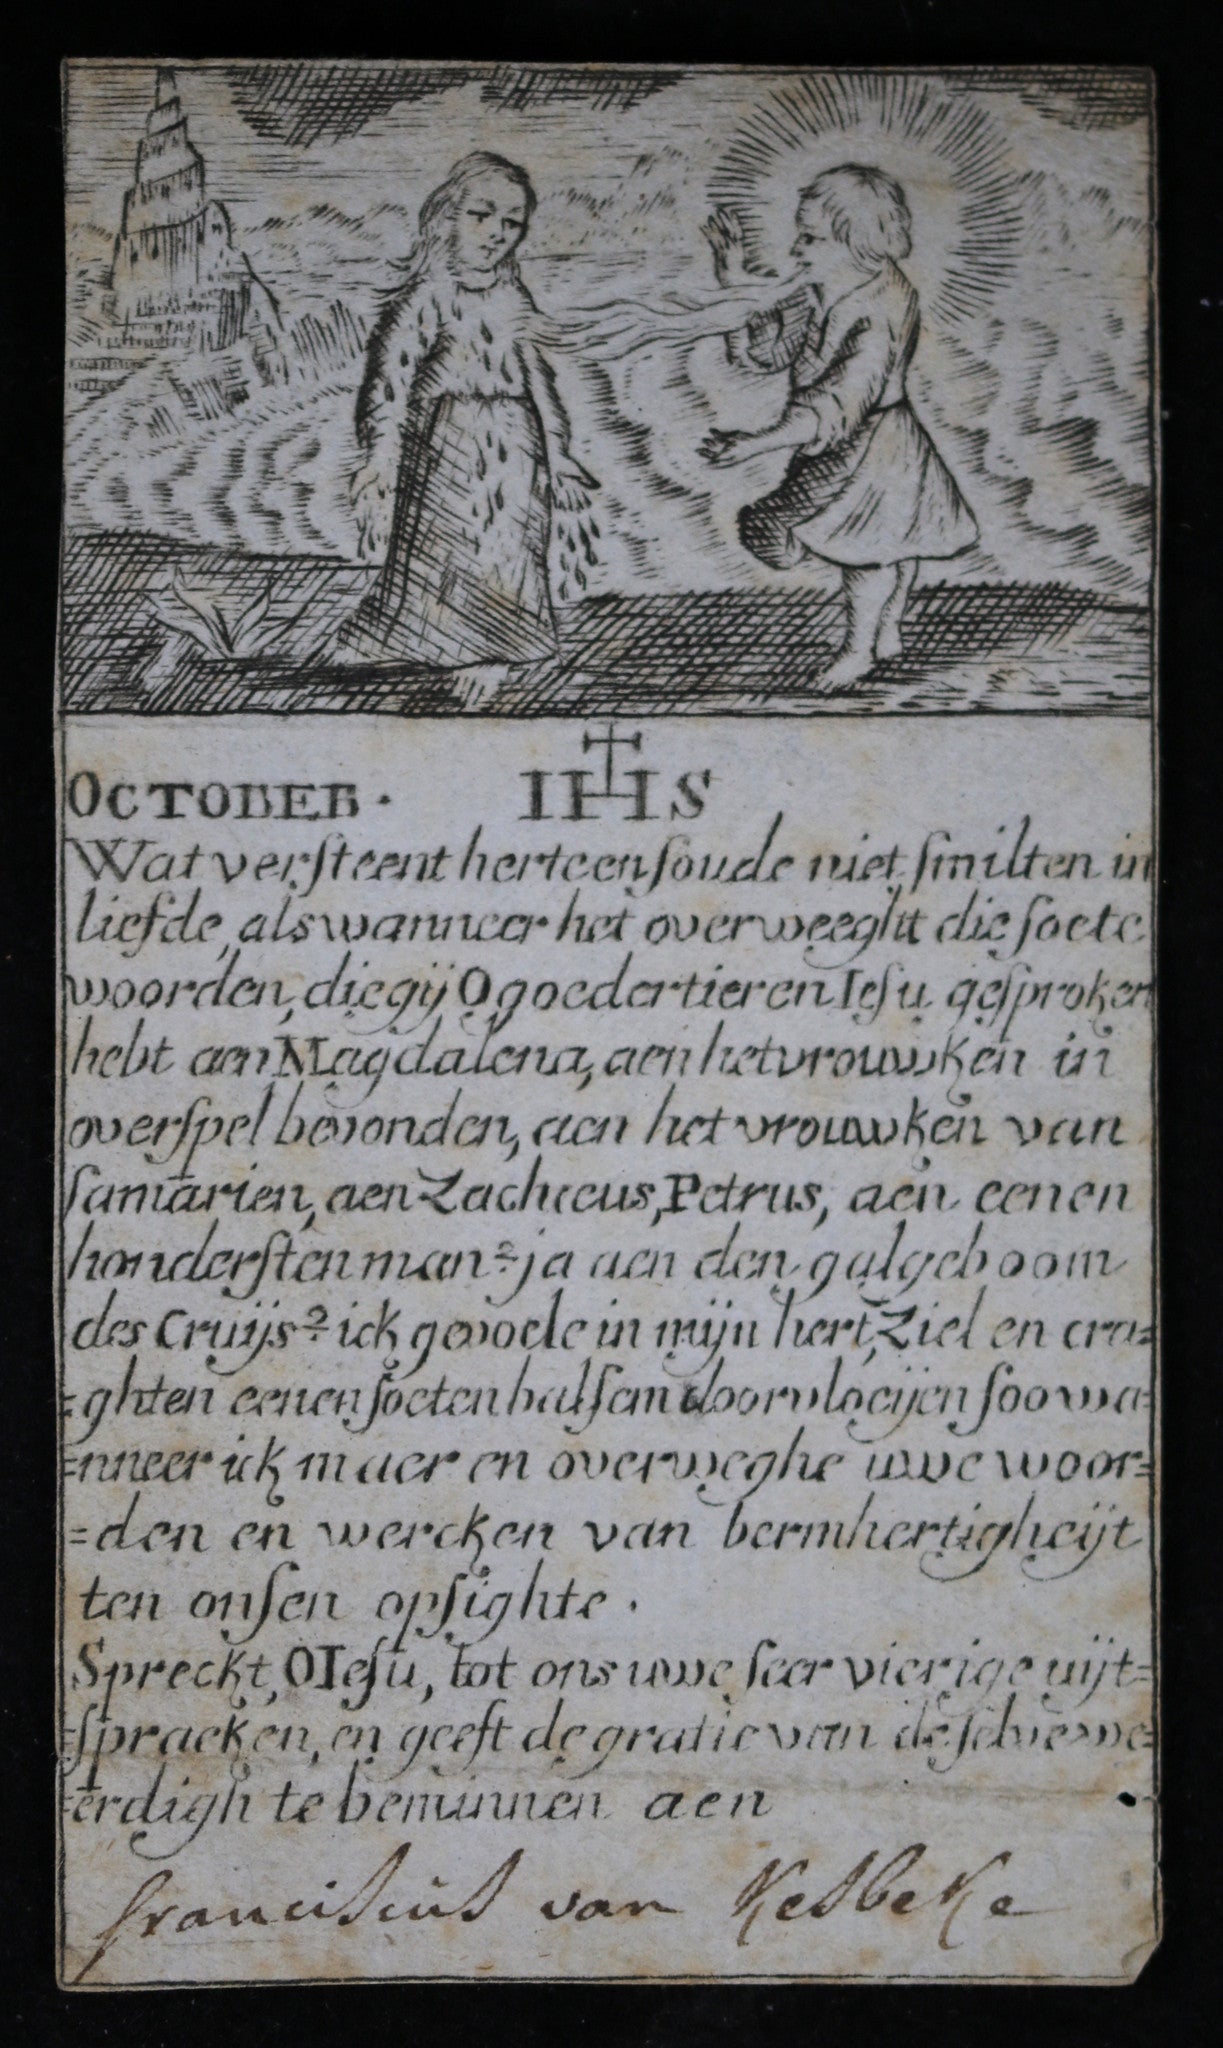 OCTOBER. IHS
Wat versteent herte en soude niet smilten in
liefde, als wanneer het overweeght die soete
woorden, die gij O goedertieren Iesu gesproken
hebt aen Magdalena, aen het vrouwken in
overspel bevonden, aen het vrouwken van
samarien, aen Zacheeus, Petrus, aen eenen
hondersten man? ja aen den galgeboom
des Cruijs? ick gevoele in mijn hert, Ziel en cra=
=ghten eenen soeten balsem doorvloeijen soo wa=
=nneer ick maer en overweghe uwe woor=
=den en wercken van bermhertigheijt
ten onsen opsighte.
Spreckt, O Iesu, tot ons uwe seer vierige uijt=
=spraeken, en geeft de gratie van deselve we=
=erdigh te beminnen aen
franciscus van Kesbeke